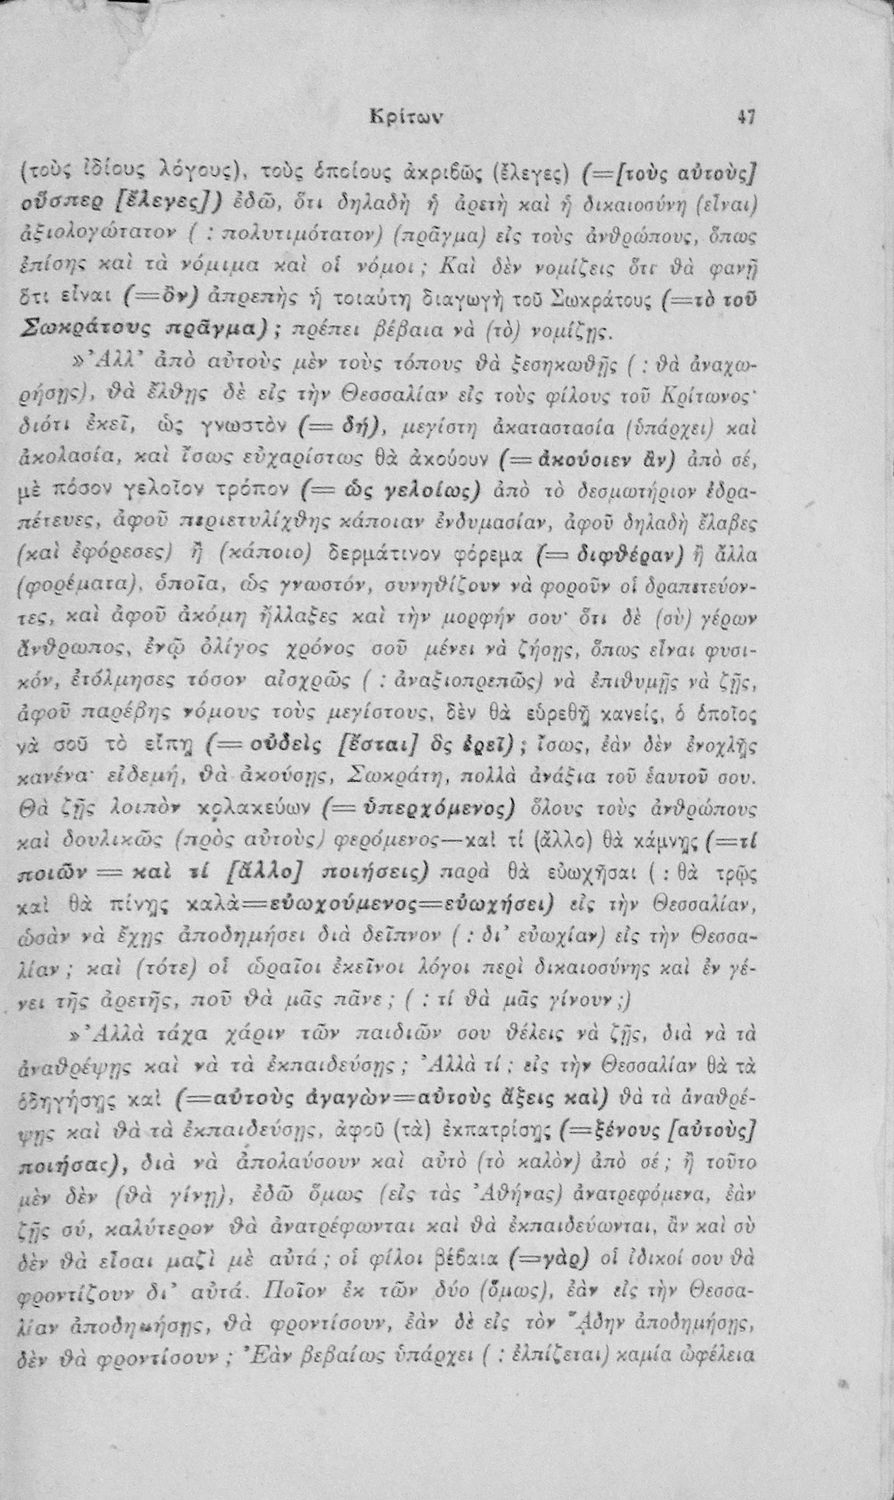 Κρίτων 47
(τοὺς ἰδίους λόγους), τοὺς ὁποίους ἀκριβῶς (ἔλεγες) (=[τοὺς αὐτοὺς]
οὕσπερ [ἔλεγες]) ἐδῶ, ὅτι δηλαδὴ ἡ ἀρετὴ καὶ ἡ δικαιοσύνη (εἶναι)
ἀξιολογώτατον ( : πολυτιμότατον) (πρᾶγμα) εἰς τοὺς ἀνθρώπους, ὅπως
ἐπίσης καὶ τὰ νόμιμα καὶ οἱ νόμοι ; Καὶ δὲν νομίζεις ὅτι θὰ φανῇ
ὅτι εἶναι (=ὂν) ἀπρεπὴς ἡ τοιαύτη διαγωγὴ τοῦ Σωκράτους (=τὸ τοῦ
Σωκράτους πρᾶγμα) ; πρέπει βέβαια νὰ (τὸ) νομίζῃς.
»Ἀλλ’ ἀπὸ αὐτοὺς μὲν τοὺς τόπους θὰ ξεσηκωθῇς ( : θὰ ἀναχω-
ρήσῃς), θὰ ἔλθῃς δὲ εἰς τὴν Θεσσαλίαν εἰς τοὺς φίλους τοῦ Κρίτωνος·
διότι ἐκεῖ, ὡς γνωστὸν (= δή), μεγίστη ἀκαταστασία (ὑπάρχει) καὶ
ἀκολασία, καὶ ἴσως εὐχαρίστως θὰ ἀκούουν (= ἀκούοιεν ἂν) ἀπὸ σέ,
μὲ πόσον γελοῖον τρόπον (= ὡς γελοίως) ἀπὸ τὸ δεσμωτήριον ἐδρα-
πέτευες, ἀφοῦ περιετυλίχθης κάποιαν ἐνδυμασίαν, ἀφοῦ δηλαδὴ ἔλαβες
(καὶ ἐφόρεσες) ἢ (κάποιο) δερμάτινον φόρεμα (= διφθέραν) ἢ ἄλλα
(φορέματα), ὁποῖα, ὡς γνωστόν, συνηθίζουν νὰ φοροῦν οἱ δραπετεύον-
τες, καὶ ἀφοῦ ἀκόμη ἤλλαξες καὶ τὴν μορφήν σου· ὅτι δὲ (σὺ) γέρων
ἄνθρωπος, ἐνῷ ὀλίγος χρόνος σοῦ μένει νὰ ζήσῃς, ὅπως εἶναι φυσι-
κόν, ἐτόλμησες τόσον αἰσχρῶς ( : ἀναξιοπρεπῶς) νὰ ἐπιθυμῇς νὰ ζῇς,
ἀφοῦ παρέβης νόμους τοὺς μεγίστους, δὲν θὰ εὑρεθῇ κανείς, ὁ ὁποῖος
νὰ σοῦ τὸ εἴπῃ (= οὐδεὶς [ἔσται] ὃς ἐρεῖ) ; ἴσως, ἐὰν δὲν ἐνοχλῇς
κανένα· εἰδεμή, θὰ ἀκούσῃς, Σωκράτη, πολλὰ ἀνάξια τοῦ ἑαυτοῦ σου.
Θὰ ζῇς λοιπὸν κολακεύων (= ὑπερχόμενος) ὅλους τοὺς ἀνθρώπους
καὶ δουλικῶς (πρὸς αὐτοὺς) φερόμενος—καὶ τί (ἄλλο) θὰ κάμνῃς (=τί
ποιῶν = καὶ τί [ἄλλο] ποιήσεις) παρὰ θὰ εὐωχῆσαι ( : θὰ τρῷς
καὶ θὰ πίνῃς καλὰ=εὐωχούμενος=εὐωχήσει) εἰς τὴν Θεσσαλίαν,
ὡσὰν νὰ ἔχῃς ἀποδημήσει διὰ δεῖπνον ( : δι’ εὐωχίαν) εἰς τὴν Θεσσα-
λίαν ; καὶ (τότε) οἱ ὡραῖοι ἐκεῖνοι λόγοι περὶ δικαιοσύνης καὶ ἐν γέ-
νει τῆς ἀρετῆς, ποῦ θὰ μᾶς πᾶνε ; ( : τί θὰ μᾶς γίνουν ;)
»Ἀλλὰ τάχα χάριν τῶν παιδιῶν σου θέλεις νὰ ζῇς, διὰ νὰ τὰ
ἀναθρέψῃς καὶ νὰ τὰ ἐκπαιδεύσῃς ; Ἀλλὰ τί ; εἰς τὴν Θεσσαλίαν θὰ τὰ
ὁδηγήσῃς καὶ (=αὐτοὺς ἀγαγὼν=αὐτοὺς ἄξεις καὶ) θὰ τὰ ἀναθρέ-
ψῃς καὶ θὰ τὰ ἐκπαιδεύσῃς, ἀφοῦ (τὰ) ἐκπατρίσῃς (=ξένους [αὐτοὺς]
ποιήσας), διὰ νὰ ἀπολαύσουν καὶ αὐτὸ (τὸ καλὸν) ἀπὸ σέ ; ἢ τοῦτο
μὲν δὲν (θὰ γίνῃ), ἐδῶ ὅμως (εἰς τὰς Ἀθήνας) ἀνατρεφόμενα, ἐὰν
ζῇς σύ, καλύτερον θὰ ἀνατρέφωνται καὶ θὰ ἐκπαιδεύωνται, ἂν καὶ σὺ
δὲν θὰ εἶσαι μαζὶ μὲ αὐτά ; οἱ φίλοι βέβαια (=γὰρ) οἱ ἰδικοί σου θὰ
φροντίζουν δι’ αὐτά. Ποῖον ἐκ τῶν δύο (ὅμως), ἐὰν εἰς τὴν Θεσσα-
λίαν ἀποδημήσῃς, θὰ φροντίσουν, ἐὰν δὲ εἰς τὸν Ἅδην ἀποδημήσῃς,
δὲν θὰ φροντίσουν ; Ἐὰν βεβαίως ὑπάρχει ( : ἐλπίζεται) καμία ὠφέλεια